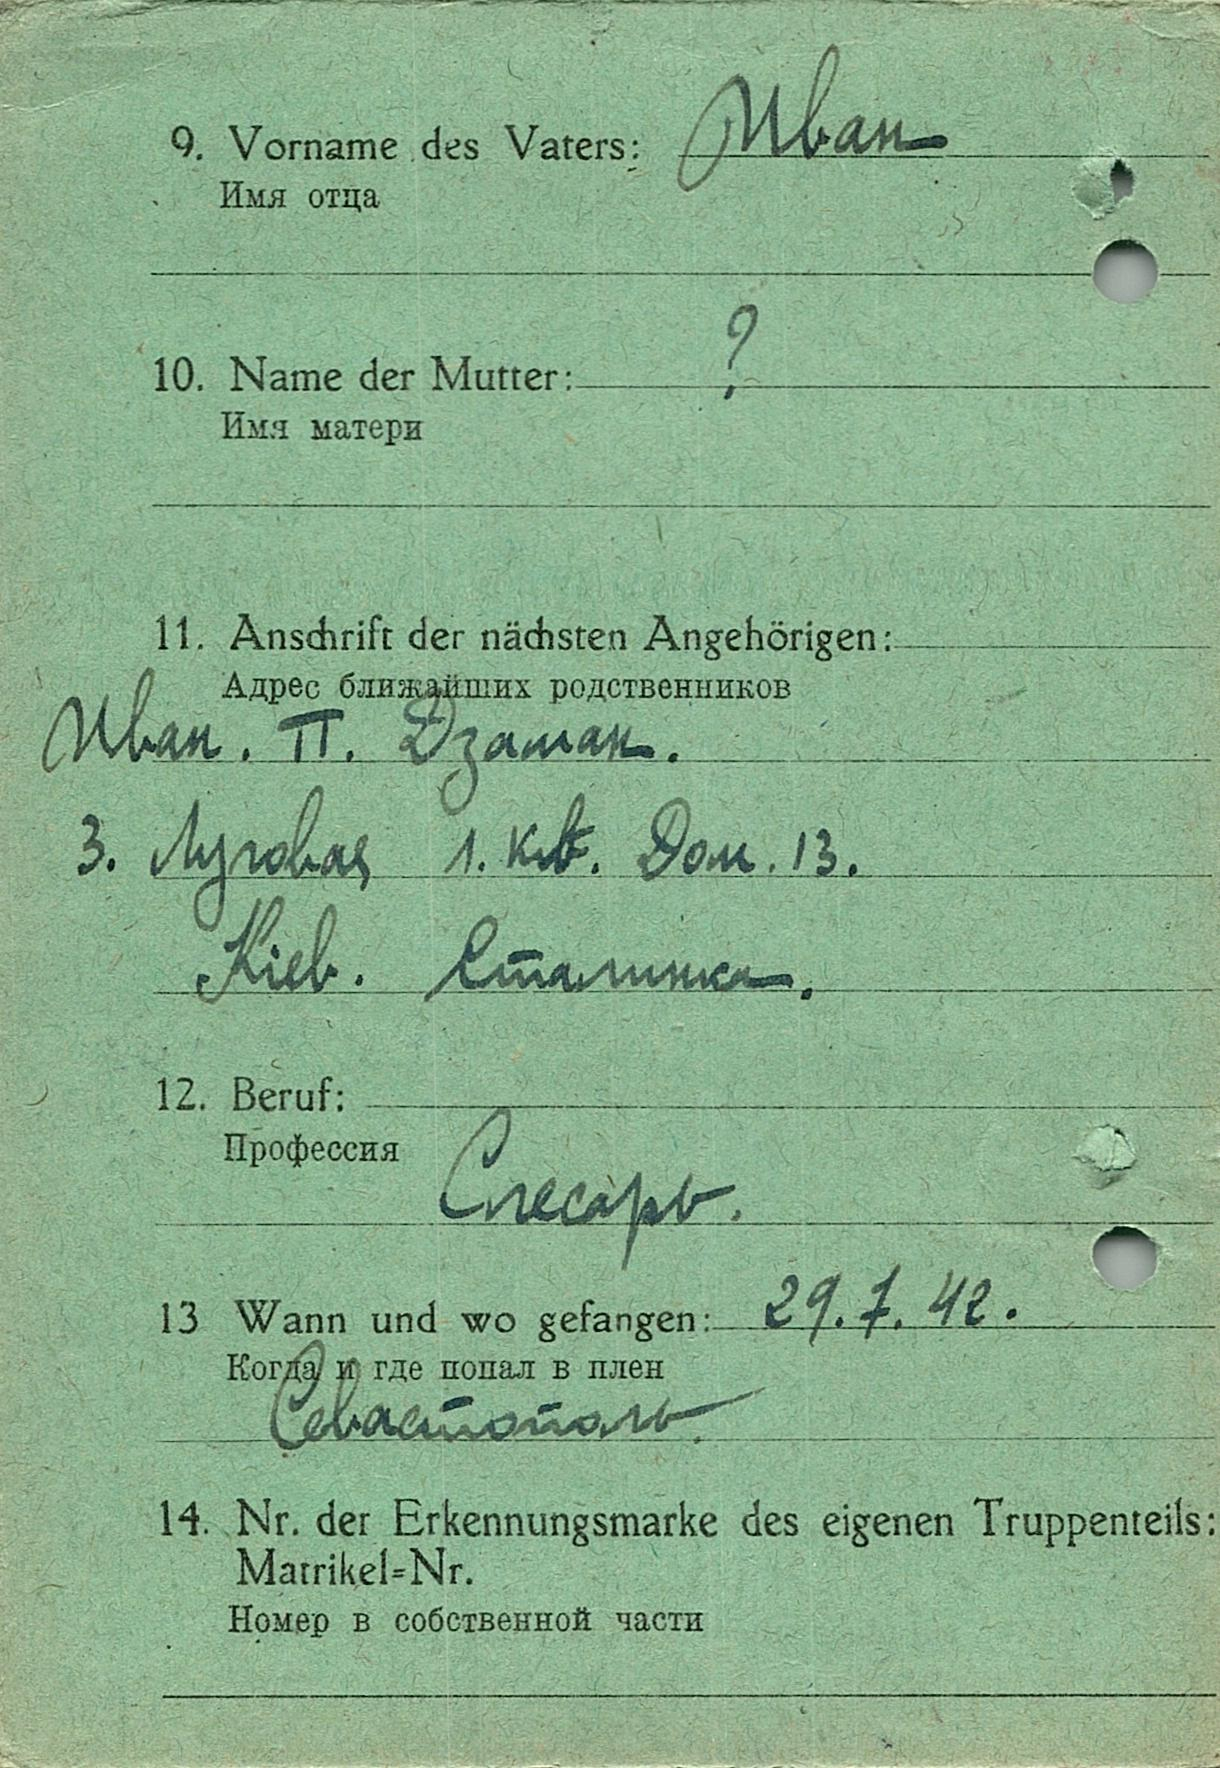 9. Vorname des Vaters: Иван
Имя отца
10. Name der Mutter: ?
Имя матери
11. Anschrift der nächsten Angehörigen:
Адрес ближайших родственников
Иван. П. Дзаман.
3. Луговая 1. кв. Дом. 13.
Кіев. Сталинка.
12. Beruf:
Профессия
Слесарь.
13 Wann und wo gefangen: 29.7.42.
Когда и где попал в плен
Севастополь
14. Nr. der Erkennungsmarke des eigenen Truppenteils:
Matrikel=Nr.
Номер в собственной части